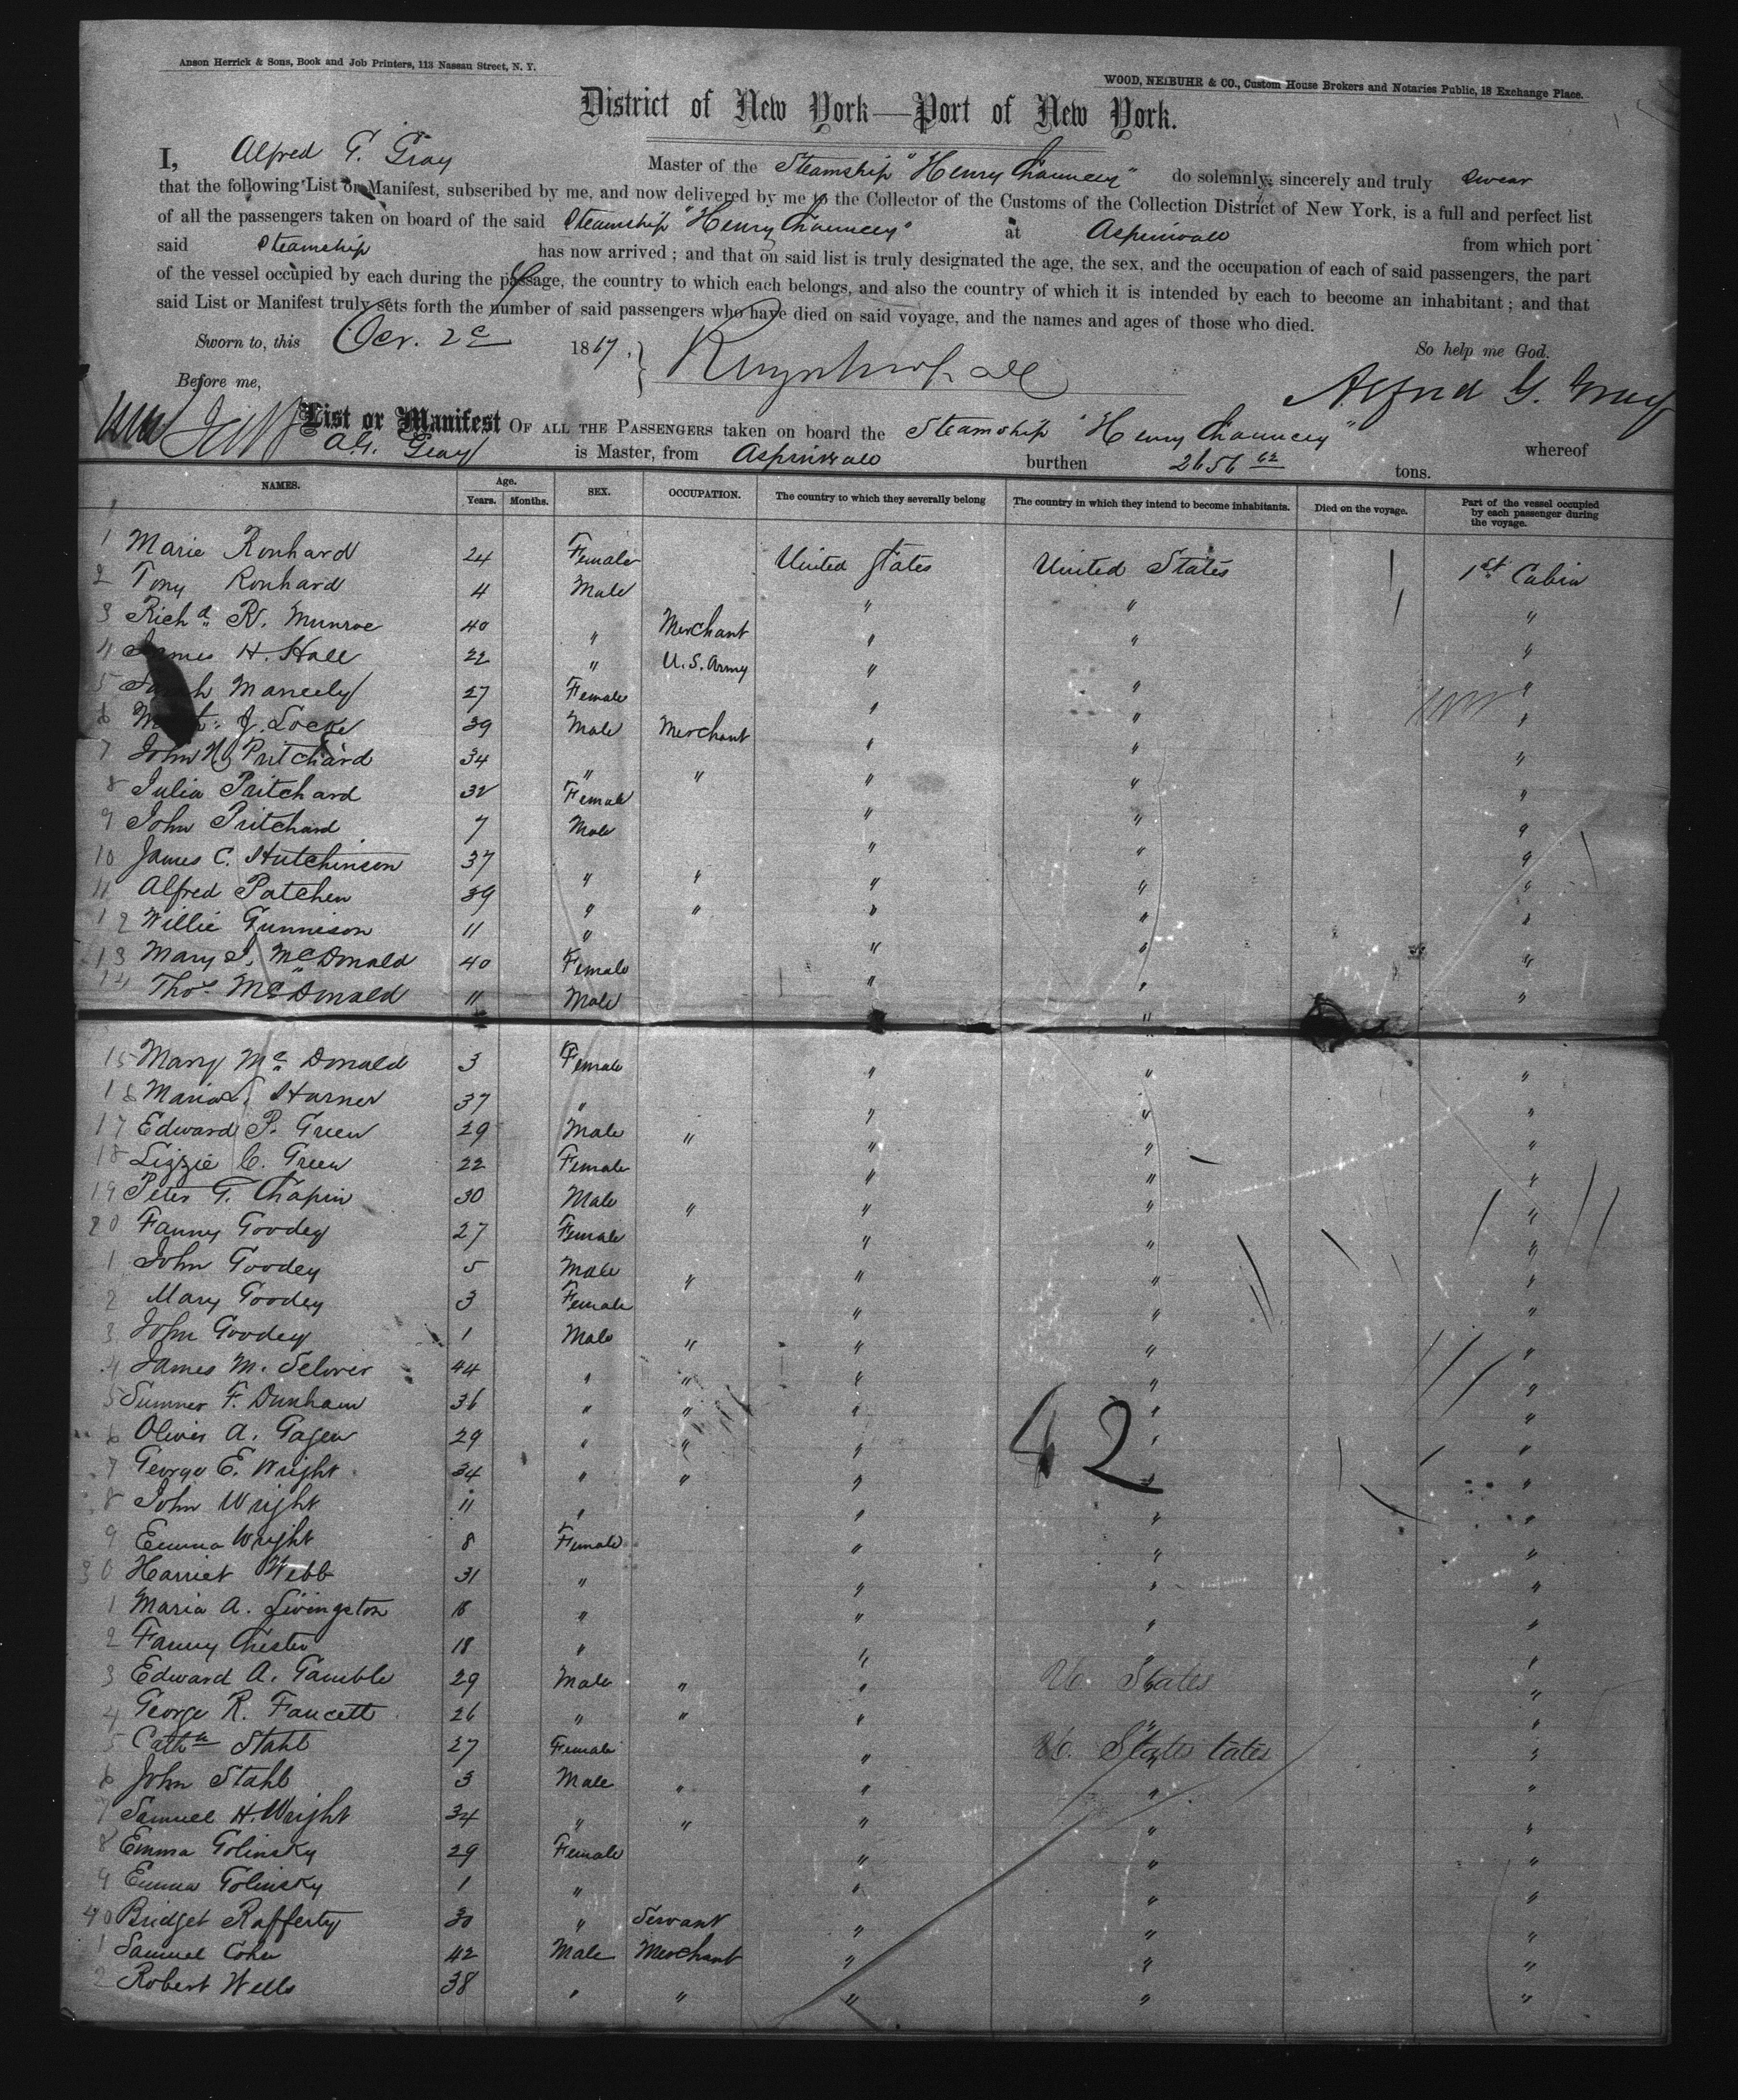 Anson Herrick & Sons, Book and Job Printers, 113 Nassau Street, N. Y.
WOOD, NEIBUHR & CO., Custom House Brokers and Notaries Public, 18 Exchange Place.
District of New York—Port of New York.
I, Alfred G. Gray Master of the Steamship "Henry Chauncey" do solemnly, sincerely and truly swear
that the following List or Manifest, subscribed by me, and now delivered by me to the Collector of the Customs of the Collection District of New York, is a full and perfect list
of all the passengers taken on board of the said Steamship "Henry Chauncey" at Aspinwall from which port
said Steamship has now arrived; and that on said list is truly designated the age, the sex, and the occupation of each of said passengers, the part
of the vessel occupied by each during the passage, the country to which each belongs, and also the country of which it is intended by each to become an inhabitant; and that
said List or Manifest truly sets forth the number of said passengers who have died on said voyage, and the names and ages of those who died.
Sworn to, this Oct. 2d 1867, So help me God.
Before me, Alfred G. Gray
List or Manifest OF ALL THE PASSENGERS taken on board the Steamship "Henry Chauncey" whereof
A.G. Gray is Master, from Aspinwall burthen 2656 62 tons.
NAMES. Age. Years. Months. SEX. OCCUPATION. The country to which they severally belong The country in which they intend to become inhabitants. Died on the voyage. Part of the vessel occupied by each passenger during the voyage.
1 Marie Ronhard 24 Female United States United States 1st Cabin
2 Tony Ronhard 4 Male " " "
3 Richd R. Munroe 40 " Merchant " " "
4 James H. Hall 22 " U.S. Army " " "
5 Sarah Maneely 27 Female " " "
6 J. Locke 39 Male Merchant " " "
7 John N. Pritchard 34 " " " " "
8 Julia Pritchard 32 Female " " "
9 John Pritchard 7 Male " " "
10 James C. Hutchinson 37 " " " " "
11 Alfred Patchen 39 " " " " "
12 Willie Gunnison 11 " " " "
13 Mary J. McDonald 40 Female " " "
14 Thos McDonald 11 Male " " "
15 Mary McDonald 3 Female " " "
16 Maria S. Harner 37 " " " "
17 Edward P. Green 29 Male " " " "
18 Lizzie C. Green 22 Female " " "
19 Peter T. Chapin 30 Male " " " "
20 Fanny Goodey 27 Female " " "
1 John Goodey 5 Male " " " "
2 Mary Goodey 3 Female " " "
3 John Goodey 1 Male " " " "
4 James M. Selover 44 " " " " "
5 Sumner F. Dunham 36 " " " " "
6 Oliver A. Gagen 29 " " " " "
42
7 George E. Wright 34 " " " " "
8 John Wright 11 " " " "
9 Emma Wright 8 Female " " "
30 Harriet Webb 31 " " " "
1 Maria A. Livingston 18 " " " "
2 Fanny Chester 18 " " " "
3 Edward A. Gamble 29 Male " " U. States "
4 George R. Faucett 26 " " " " "
5 Cathn Stahl 27 Female " U. States tates "
6 John Stahl 3 Male " " " "
7 Samuel H. Wright 34 " " " " "
8 Emma Golinsky 29 Female " " "
9 Emma Golinsky 1 " " " "
40 Bridget Rafferty 30 " Servant " " "
1 Samuel Cohn 42 Male Merchant " " "
2 Robert Wells 38 " " " " "